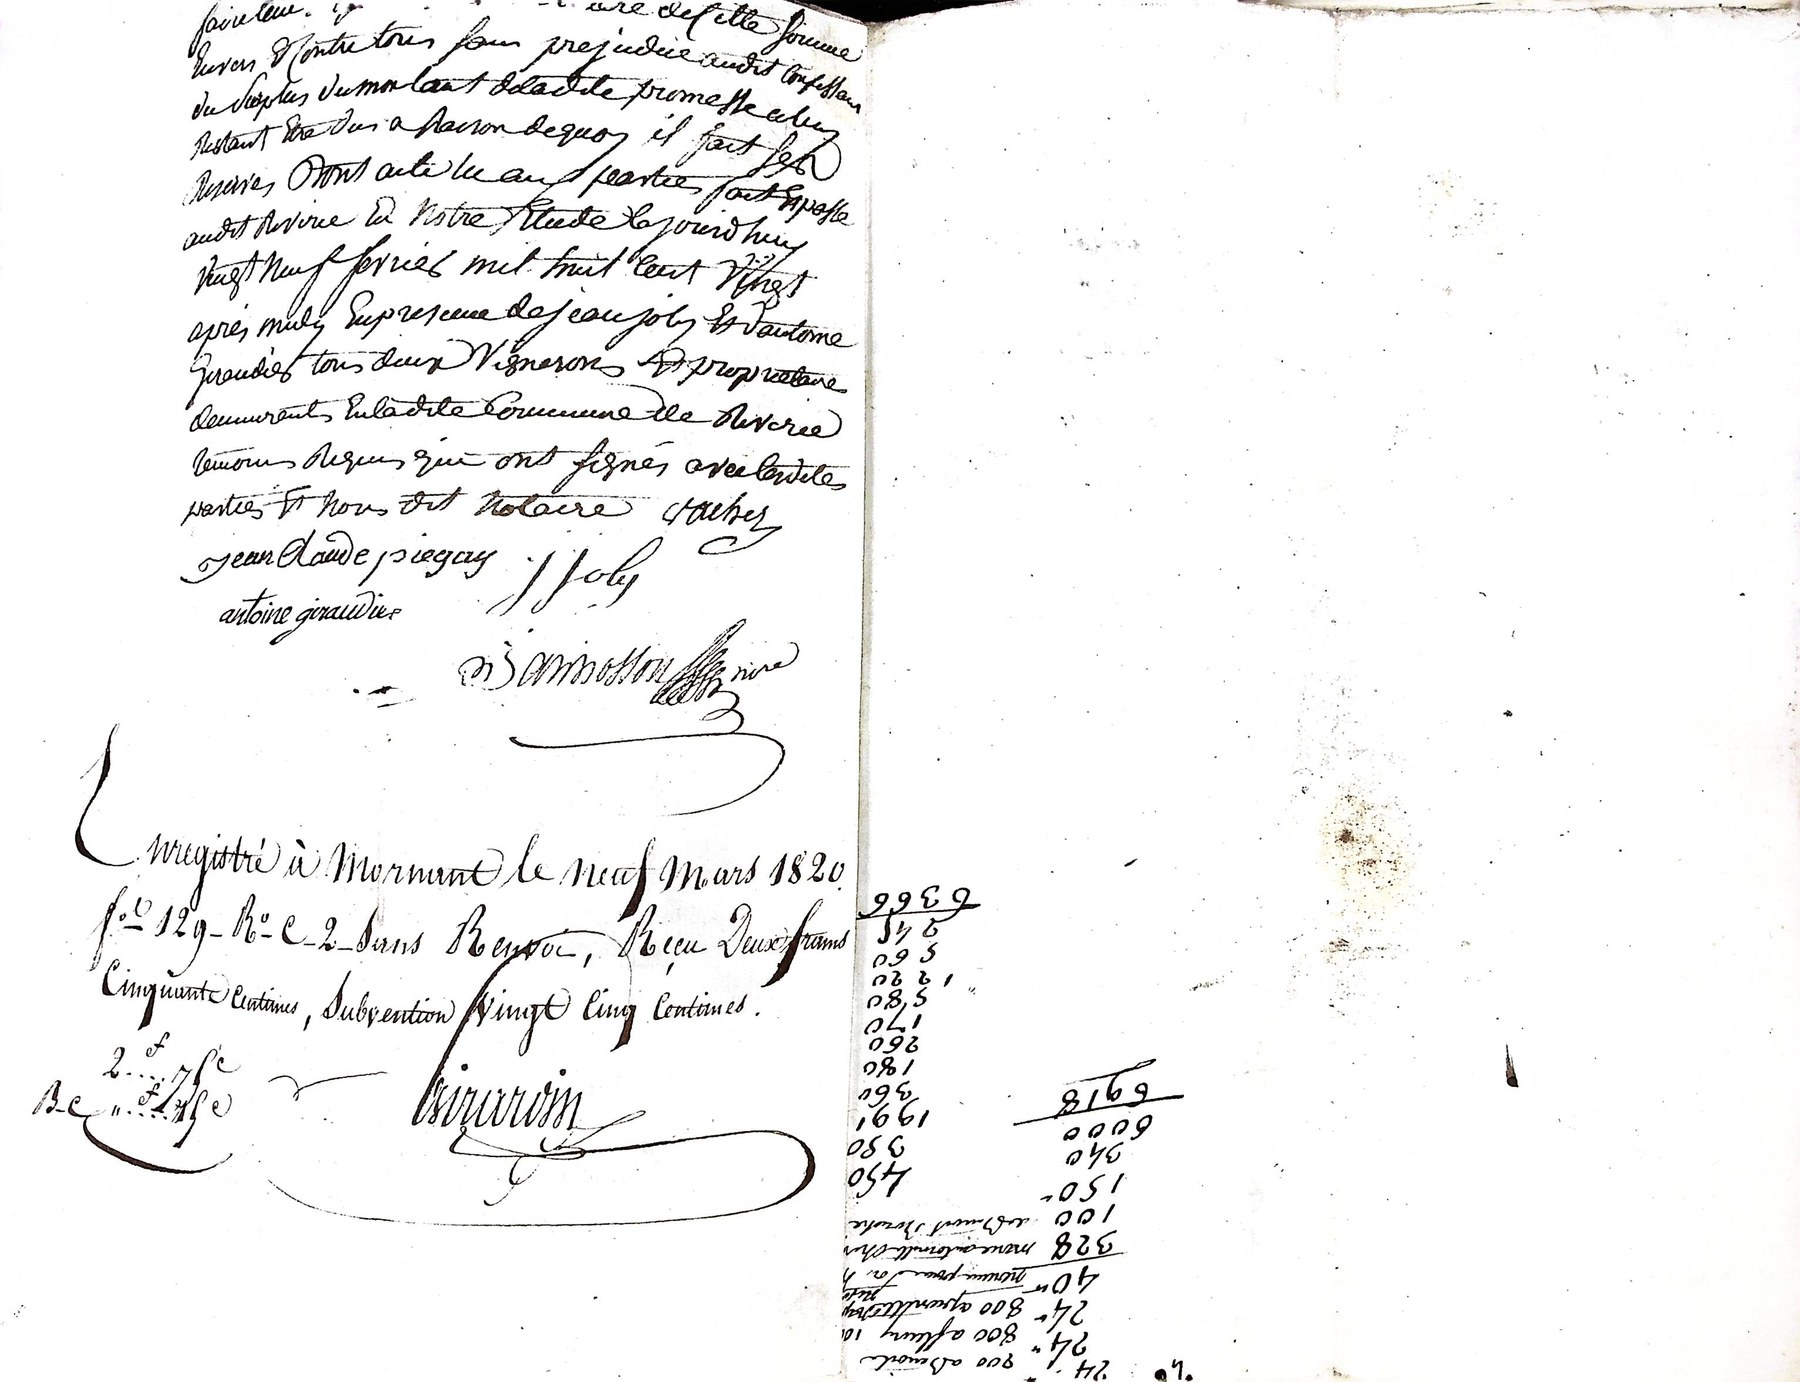 faire tenir. de cette somme
Envers Et Contre tous sans prejudice audit Confesseur
du surplus du montant deladite promesse a luy
Restant Etre dus a Raison dequoy il fait ses
Reserves Dont acte lu aux parties fait Et passé
audit Riverie En Notre Etude Cejourd'huy
Vingt Neuf fevrier mil huit Cent Vingt
après midy En presence de Jean joly Et d'antoine
Giraudier tous deux Vignerons Et proprietaires
demeurants En ladite Commune de Riverie
temoins Requis qui ont signés avec lesdites
parties Et Nous dit Notaire
jean Claude piegay J Joly
antoine giraudier
nore
Enregistré à Mornant le neuf Mars 1820.
f.o 129 Ro C. 2 Sans Renvoi, Reçu Deux francs
Cinquante Centimes, Subvention Vingt Cinq Centimes.
2 f 75 c
Girardin
24 200
24 800 a fleury
24 800
40
328
100
150
340
6000
6918
450
350
1991
360
180
260
170
580
1220
560
245
6366